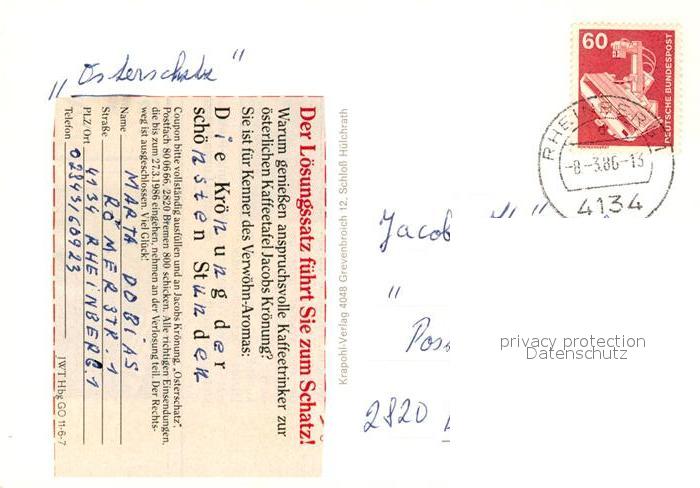 „Osterschatz"
Der Lösungssatz führt Sie zum Schatz!
Warum genießen anspruchsvolle Kaffeetrinker zur
österlichen Kaffeetafel Jacobs Krönung?
Sie ist für Kenner des Verwöhn-Aromas:
Die Krönung der
schönsten Stunden
Coupon bitte vollständig ausfüllen und an Jacobs Krönung „Osterschatz",
Postfach 80 06 66, 2820 Bremen 800 schicken. Alle richtigen Einsendungen,
die bis zum 27.3.1986 eingehen, nehmen an der Verlosung teil. Der Rechts-
weg ist ausgeschlossen. Viel Glück!
Name MARTA DOBIAS
Straße RÖMERSTR. 1
PLZ/Ort 4134 RHEINBERG. 1
Telefon 02843/60923
JWT Hbg GO 11-6-7
Krapohl-Verlag 4048 Grevenbroich 12, Schloß Hülchrath
60
DEUTSCHE BUNDESPOST
RHEINBERG 1
d
-8.-3.86-13
4134
Jacob
"
2820
privacy protection
Datenschutz